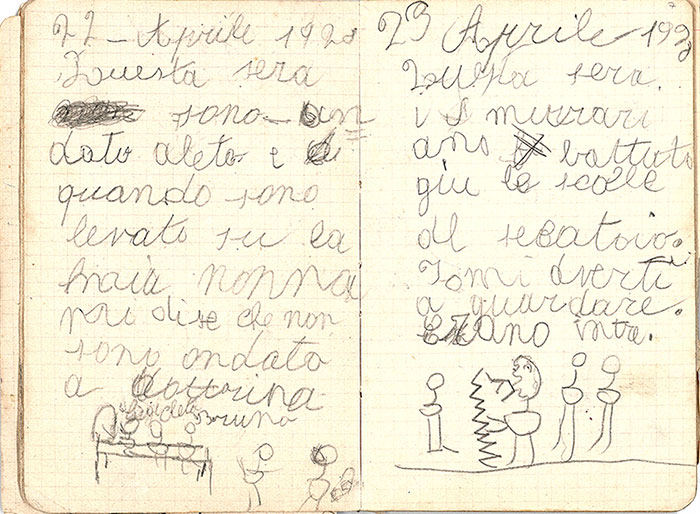 22 - Aprile 192
Questa sera
sono - an
dato aleto e
quando sono
levato su la
maia nonna
mi dise che non
sono andato
a dottorina
Bruno
23 Aprile 192
Questa sera
i murrari
ano battuto
giu le scale
del secatoio.
Io mi diverti
a guardare.
erano in tre.